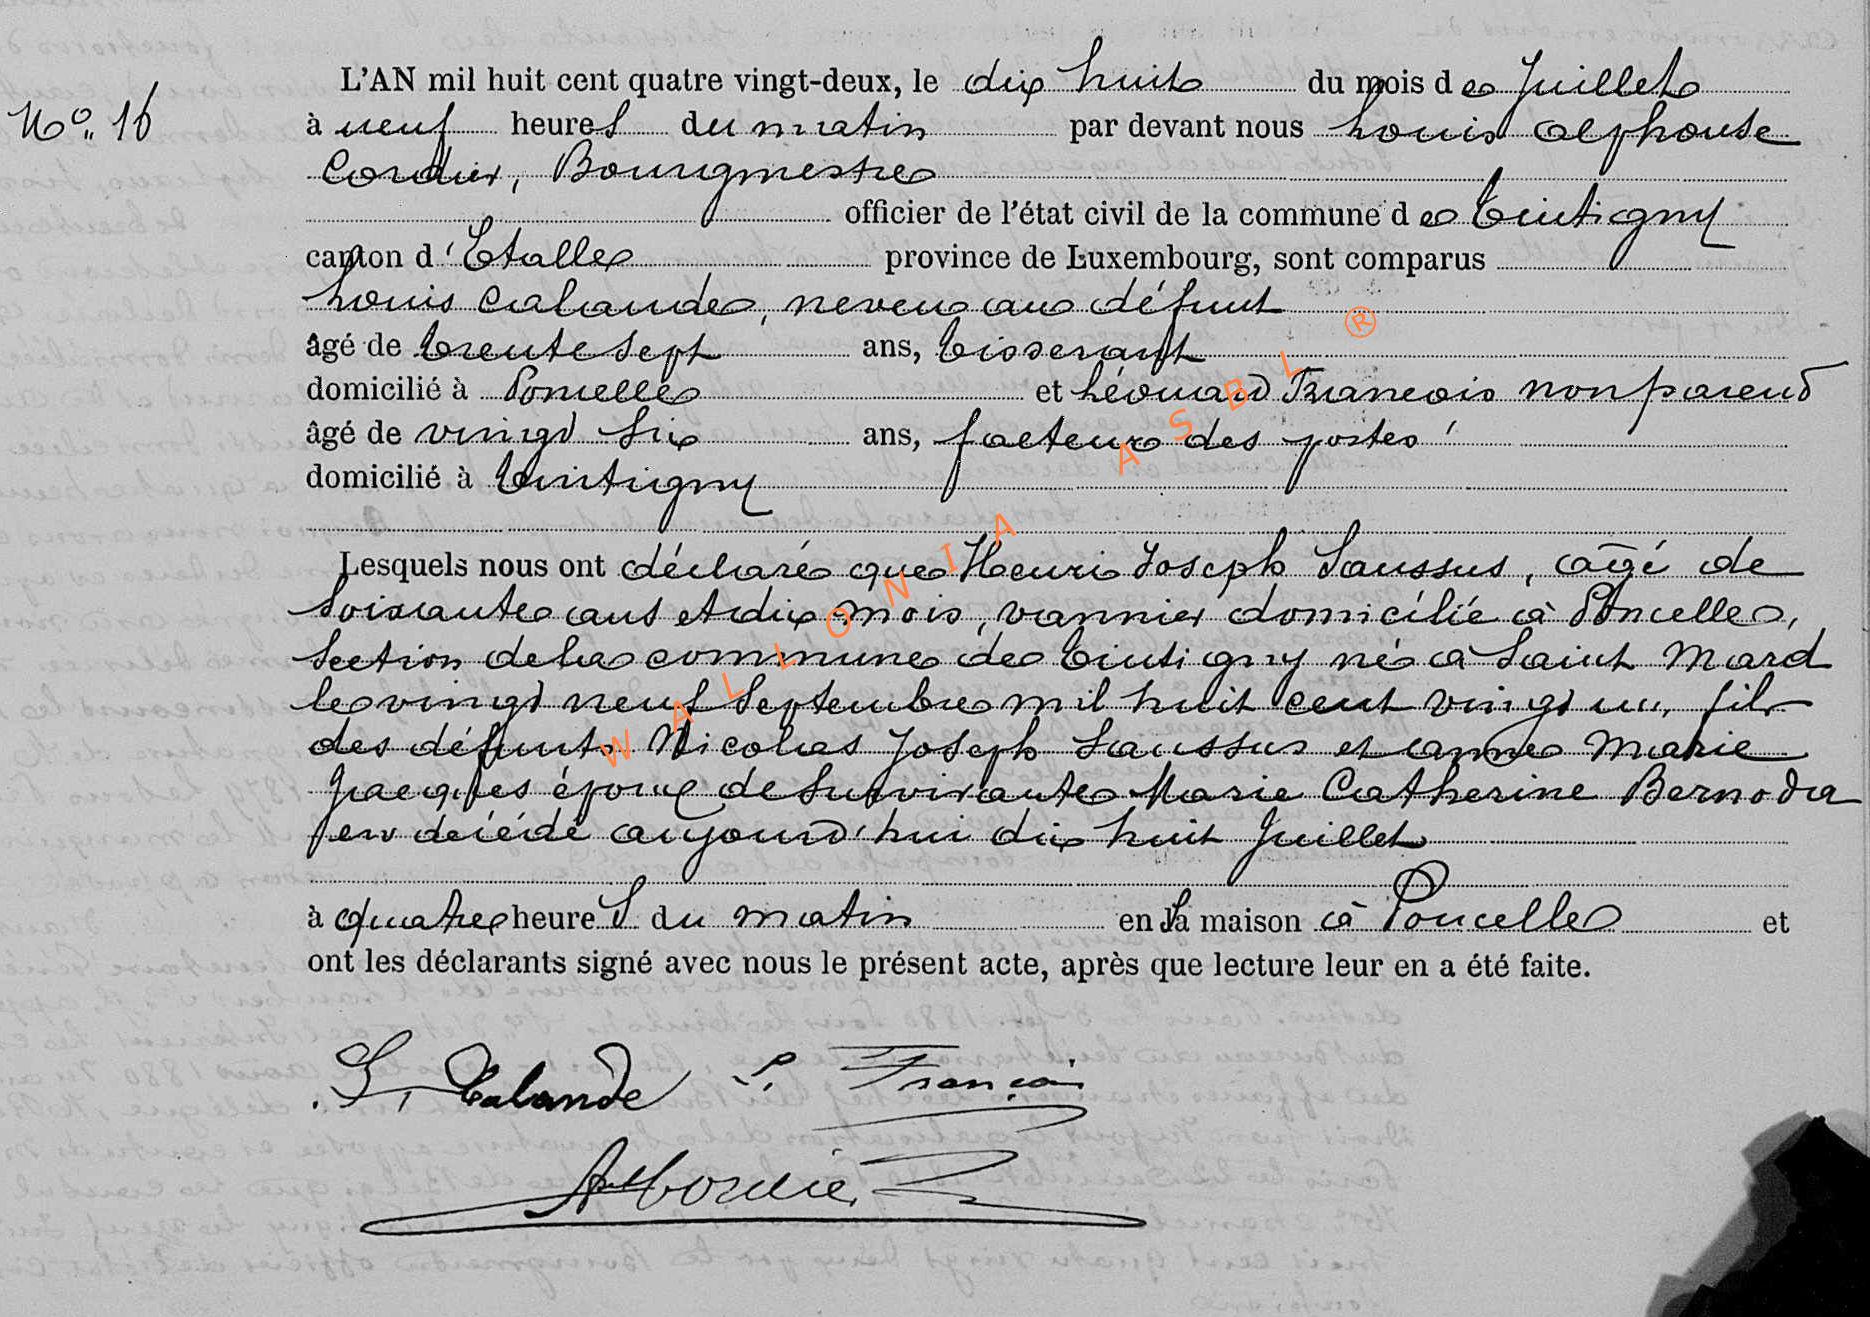 No. 16
L'AN mil huit cent quatre vingt-deux, le dix huit du mois de Juillet
à neuf heures du matin par devant nous Louis Alphonse
Cordier, Bourgmestre
officier de l'état civil de la commune de Tintigny
canton d'Etalle province de Luxembourg, sont comparus
Louis Calande, neveu au défunt
âgé de trente sept ans, tisserant
domicilié à Poncelle et Léonard François non parend
âgé de vingt six ans, facteur des postes
domicilié à Tintigny
Lesquels nous ont déclaré que Henri Joseph Saussus, âgé de
soixante ans et dix mois, vannier domicilié à Poncelle,
section de la commune de Tintigny né à Saint Mard
le vingt neuf Septembre mil huit cent vingt un, fils
des défunts Nicolas Joseph Saussus et Anne Marie
Jacques époux de survivante Marie Catherine Bernoda
est décédé aujourd'hui dix huit Juillet
à quatre heures du matin en sa maison à Poncelle et
ont les déclarants signé avec nous le présent acte, après que lecture leur en a été faite.
L. Calande L. François
A Cordier
WALLONIA ASBL ®